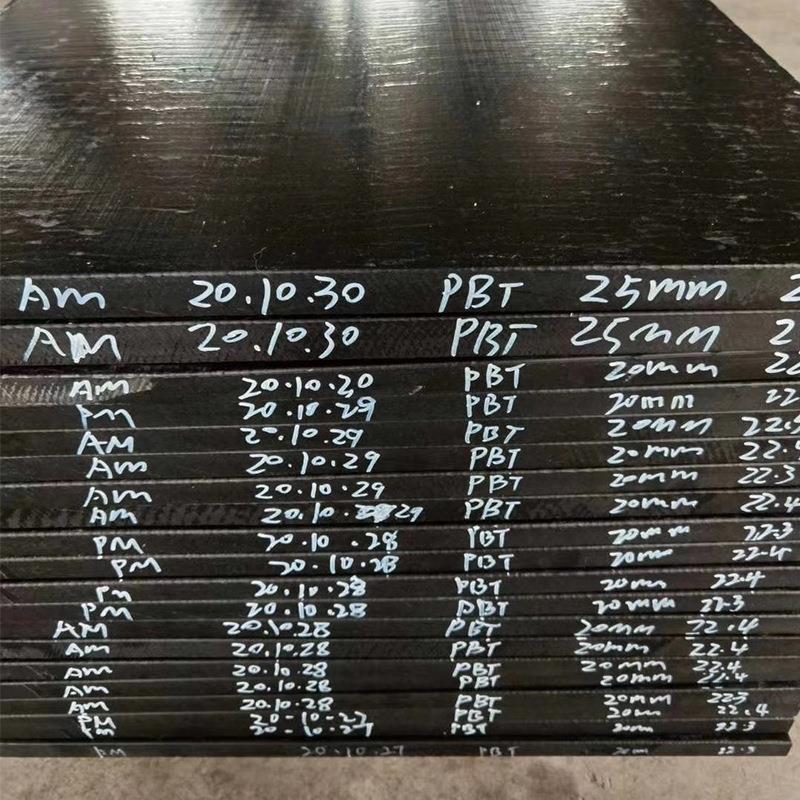 Am 20.10.30 PBT 25mm 2
AM 20.10.30 PBT 25mm 2
Am 20.10.30 PBT 20mm 22
PM 20.10.29 PBT 20mm 22
AM 20.10.29 PBT 20mm 22.
Am 20.10.29 PBT 20mm 22.4
Am 20.10.29 PBT 20mm 22.3
Am 20.10. 29 PBT 20mm 22.4
PM 20.10.28 PBT 20mm 22.3
PM 20.10.28 PBT 20mm 22.4
Pm 20.10.28 PBT 20mm 22.4
PM 20.10.28 PBT 20mm 22.3
AM 20.10.28 PBT 20mm 22.4
Am 20.10.28 PBT 20mm 22.4
Am 20.10.28 PBT 20mm 22.4
Am 20.10.28 PBT 20mm 22.4
Am 20.10.28 PBT 20mm 22.3
PM 20-10-27 PBT 20mm 22.4
Pm 20-10-27 PBT 20mm 22.3
PM 20.10.27 PBT 20mm 22.3